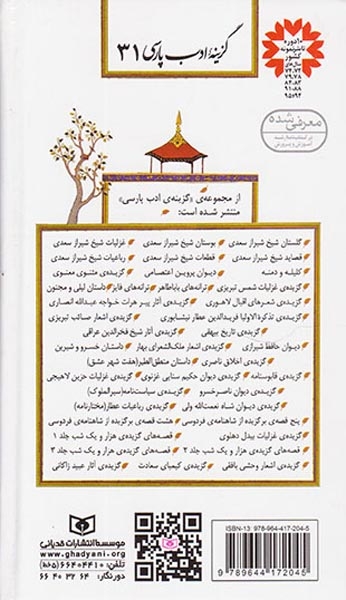 گزینهٔ ادب پارسی ۳۱
۱۰ دوره
ناشر نمونه
کشور
سال‌های
۷۴،۷۲
۷۹،۷۸
۸۴،۸۲
۹۱،۸۸
۹۵،۹۴
معرفی شده
در کتابنامه رشد
آموزش و پرورش
از مجموعه‌ی «گزینه‌ی ادب پارسی»
منتشر شده است:
گلستان شیخ شیراز سعدی بوستان شیخ شیراز سعدی غزلیات شیخ شیراز سعدی
قصاید شیخ شیراز سعدی قطعات شیخ شیراز سعدی رباعیات شیخ شیراز سعدی
کلیله و دمنه دیوان پروین اعتصامی گزیده‌ی مثنوی معنوی
گزیده‌ی غزلیات شمس تبریزی ترانه‌های باباطاهر ترانه‌های فایز داستان لیلی و مجنون
گزیده‌ی شعرهای اقبال لاهوری گزیده‌ی آثار پیر هرات خواجه عبدالله انصاری
گزیده‌ی تذکرة الاولیا فریدالدین عطار نیشابوری گزیده‌ی اشعار صائب تبریزی
گزیده‌ی تاریخ بیهقی گزیده‌ی آثار شیخ فخرالدین عراقی
دیوان حافظ شیرازی گزیده‌ی اشعار ملک‌الشعرای بهار داستان خسرو و شیرین
گزیده‌ی اخلاق ناصری داستان منطق‌الطیر (هفت شهر عشق)
گزیده‌ی قابوسنامه گزیده‌ی دیوان حکیم سنایی غزنوی گزیده‌ی غزلیات حزین لاهیجی
گزیده‌ی دیوان ناصرخسرو گزیده‌ی سیاست‌نامه (سیرالملوک)
گزیده‌ی دیوان شاه نعمت‌الله ولی گزیده‌ی رباعیات عطار (مختارنامه)
پنج قصه‌ی برگزیده از شاهنامه‌ی فردوسی هشت قصه‌ی برگزیده از شاهنامه‌ی فردوسی
گزیده‌ی غزلیات بیدل دهلوی قصه‌های گزیده‌ی هزار و یک شب جلد ۱
قصه‌های گزیده‌ی هزار و یک شب جلد ۲ قصه‌های گزیده‌ی هزار و یک شب جلد ۳
گزیده‌ی اشعار وحشی بافقی گزیده‌ی کیمیای سعادت گزیده‌ی آثار عبید زاکانی
موسسه انتشارات قدیانی
www.ghadyani.org
تلفن: ۶۶۴۰۴۴۱۰ (۵خط)
دورنگار: ۶۶۴۰۳۲۶۴
ISBN-13 978-964-417-204-5
9 789644 172045